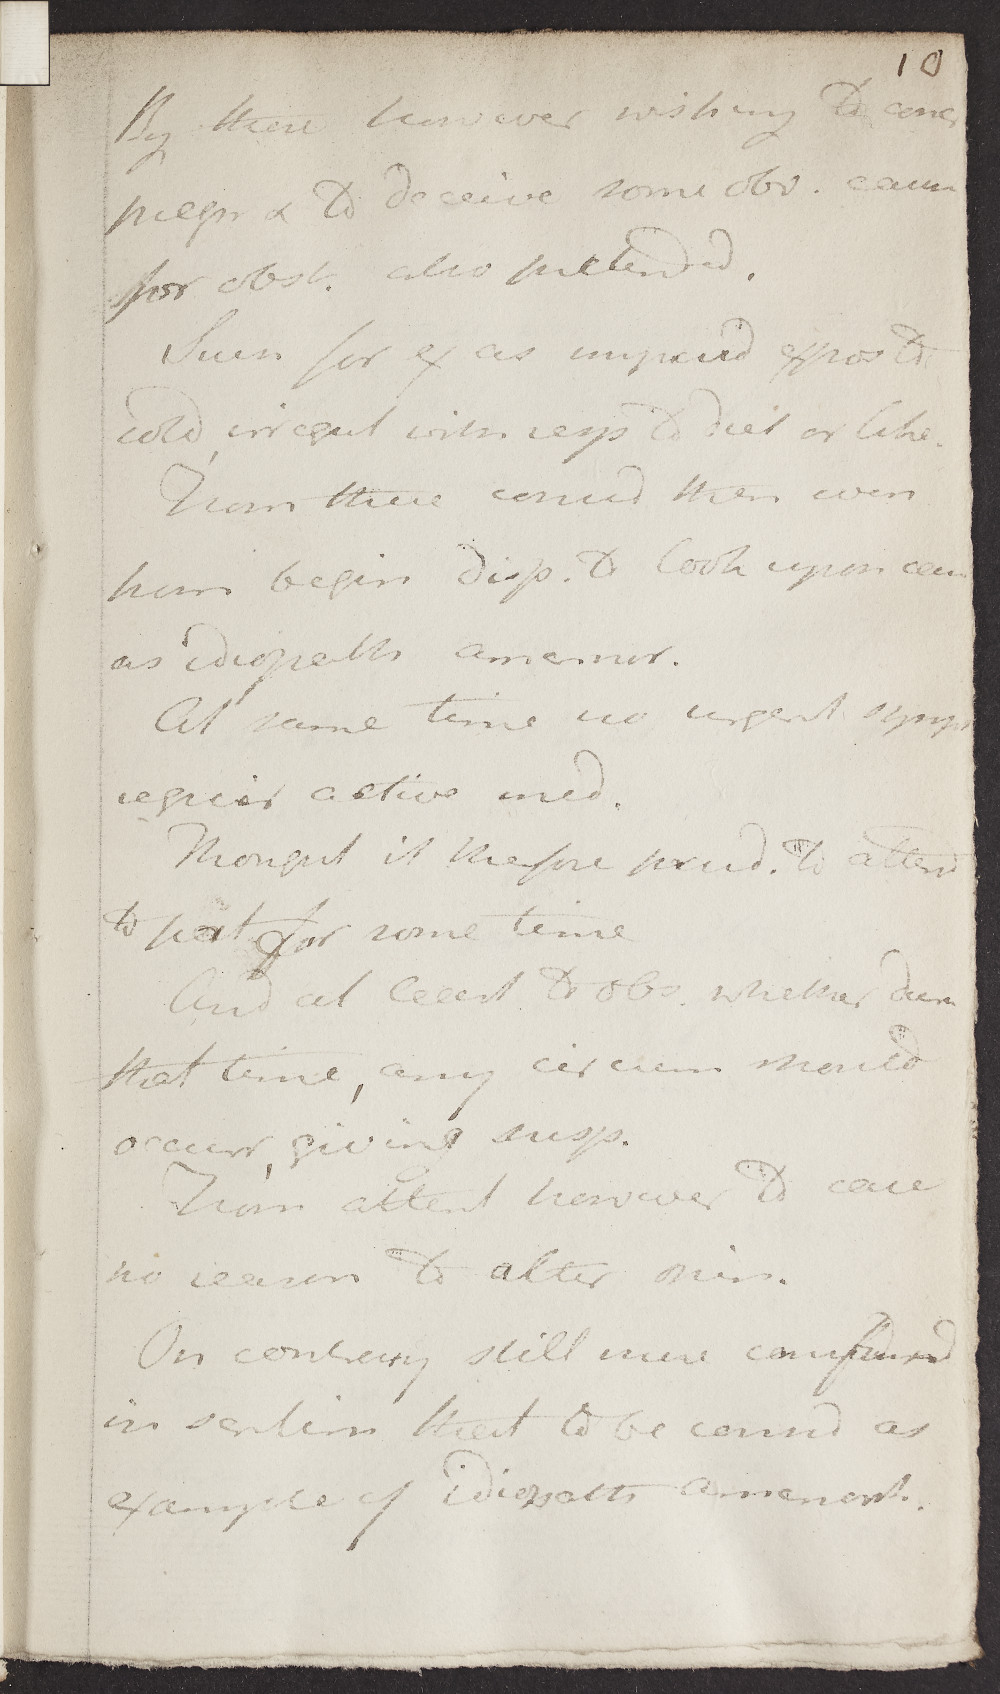 10
By these however wishing to conc
pregn & to deceive some obv. caus
for obst. also pretended.
Such for ex as imprud expos to
cold, irregul with resp to diet or like.
From these consid then even
from begin disp. to look upon case
as idiopath amenor.
At same time no urgent symp
requir active med.
Thought it therefore prud. to attend
to pat for some time
And at least to obs. whether durn
that time, any circum should
occurr, giving susp.
From attent however to case
no reason to alter opin.
On contrary still more confirmd
in sentim that to be consid as
example of idiopath amenorh.